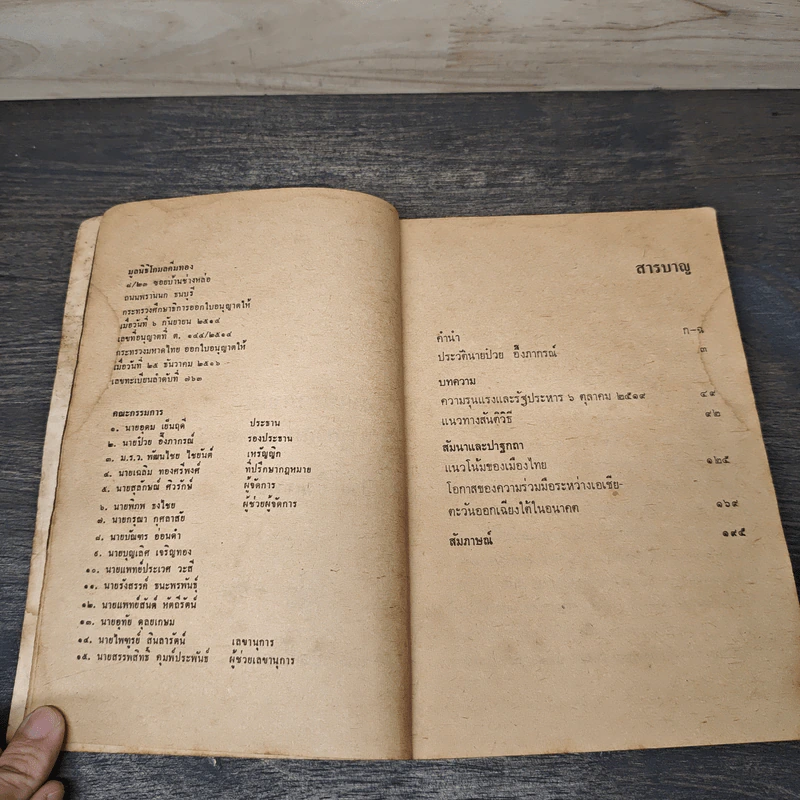 มูลนิธิโกมลคีมทอง
๘/๒๓ ซอยบ้านช่างหล่อ
ถนนพรานนก ธนบุรี
กระทรวงศึกษาธิการออกใบอนุญาตให้
เมื่อวันที่ ๖ กันยายน ๒๕๑๔
เลขที่อนุญาตที่ ต. ๑๔๔/๒๕๑๔
กระทรวงมหาดไทย ออกใบอนุญาตให้
เมื่อวันที่ ๒๕ ธันวาคม ๒๕๑๖
เลขทะเบียนลำดับที่ ๗๖๓
คณะกรรมการ
๑. นายอุดม เย็นฤดี ประธาน
๒. นายป๋วย อึ๊งภากรณ์ รองประธาน
๓. ม.ร.ว. พัฒนไชย ไชยันต์ เหรัญญิก
๔. นายเฉลิม ทองศรีพงศ์ ที่ปรึกษากฎหมาย
๕. นายสุลักษณ์ ศิวรักษ์ ผู้จัดการ
๖. นายพิภพ ธงไชย ผู้ช่วยผู้จัดการ
๗. นายกรุณา กุศลาสัย
๘. นายบัณฑร อ่อนดำ
๙. นายบุญเลิศ เจริญทอง
๑๐. นายแพทย์ประเวศ วะสี
๑๑. นายรังสรรค์ ธนะพรพันธุ์
๑๒. นายแพทย์สันต์ หัตถีรัตน์
๑๓. นายอุทัย ดุลยเกษม
๑๔. นายไพฑูรย์ สินลารัตน์ เลขานุการ
๑๕. นายสรรพสิทธิ์ คุมพ์ประพันธ์ ผู้ช่วยเลขานุการ
สารบาญ
คำนำ ก-ฉ
ประวัตินายป๋วย อึ๊งภากรณ์ ๓
บทความ
ความรุนแรงและรัฐประหาร ๖ ตุลาคม ๒๕๑๙ ๔๙
แนวทางสันติวิธี ๙๒
สัมนาและปาฐกถา
แนวโน้มของเมืองไทย ๑๒๕
โอกาสของความร่วมมือระหว่างเอเซีย-
ตะวันออกเฉียงใต้ในอนาคต ๑๖๙
สัมภาษณ์ ๑๙๕